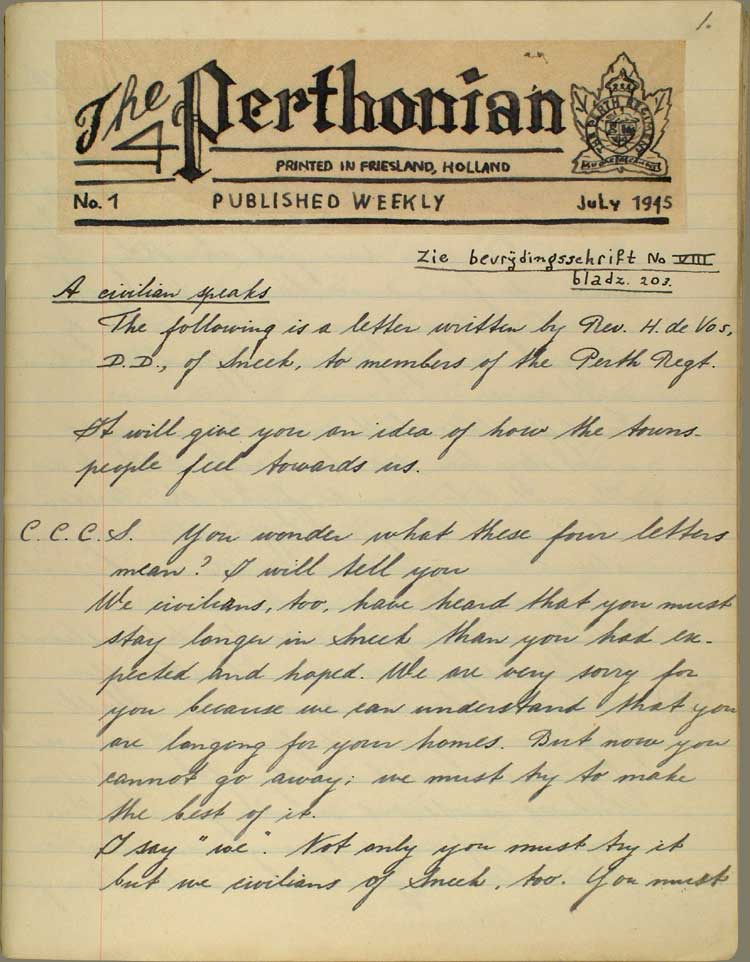 1.
The Perthonian
PRINTED IN FRIESLAND, HOLLAND
No. 1 PUBLISHED WEEKLY July 1945
THE PERTH REGIMENT
Zie bevrijdingsschrift No VIII
bladz. 203.
A civilian speaks
The following is a letter written by Rev. H. de Vos,
D.D., of Sneek, to members of the Perth Regt.
It will give you an idea of how the towns-
people feel towards us.
C.C.C.S. You wonder what these four letters
mean? I will tell you
We civilians, too, have heard that you must
stay longer in Sneek than you had ex-
pected and hoped. We are very sorry for
you because we can understand that you
are longing for your homes. But now you
cannot go away; we must try to make
the best of it.
I say "we". Not only you must try it
but we civilians of Sneek, too. You must